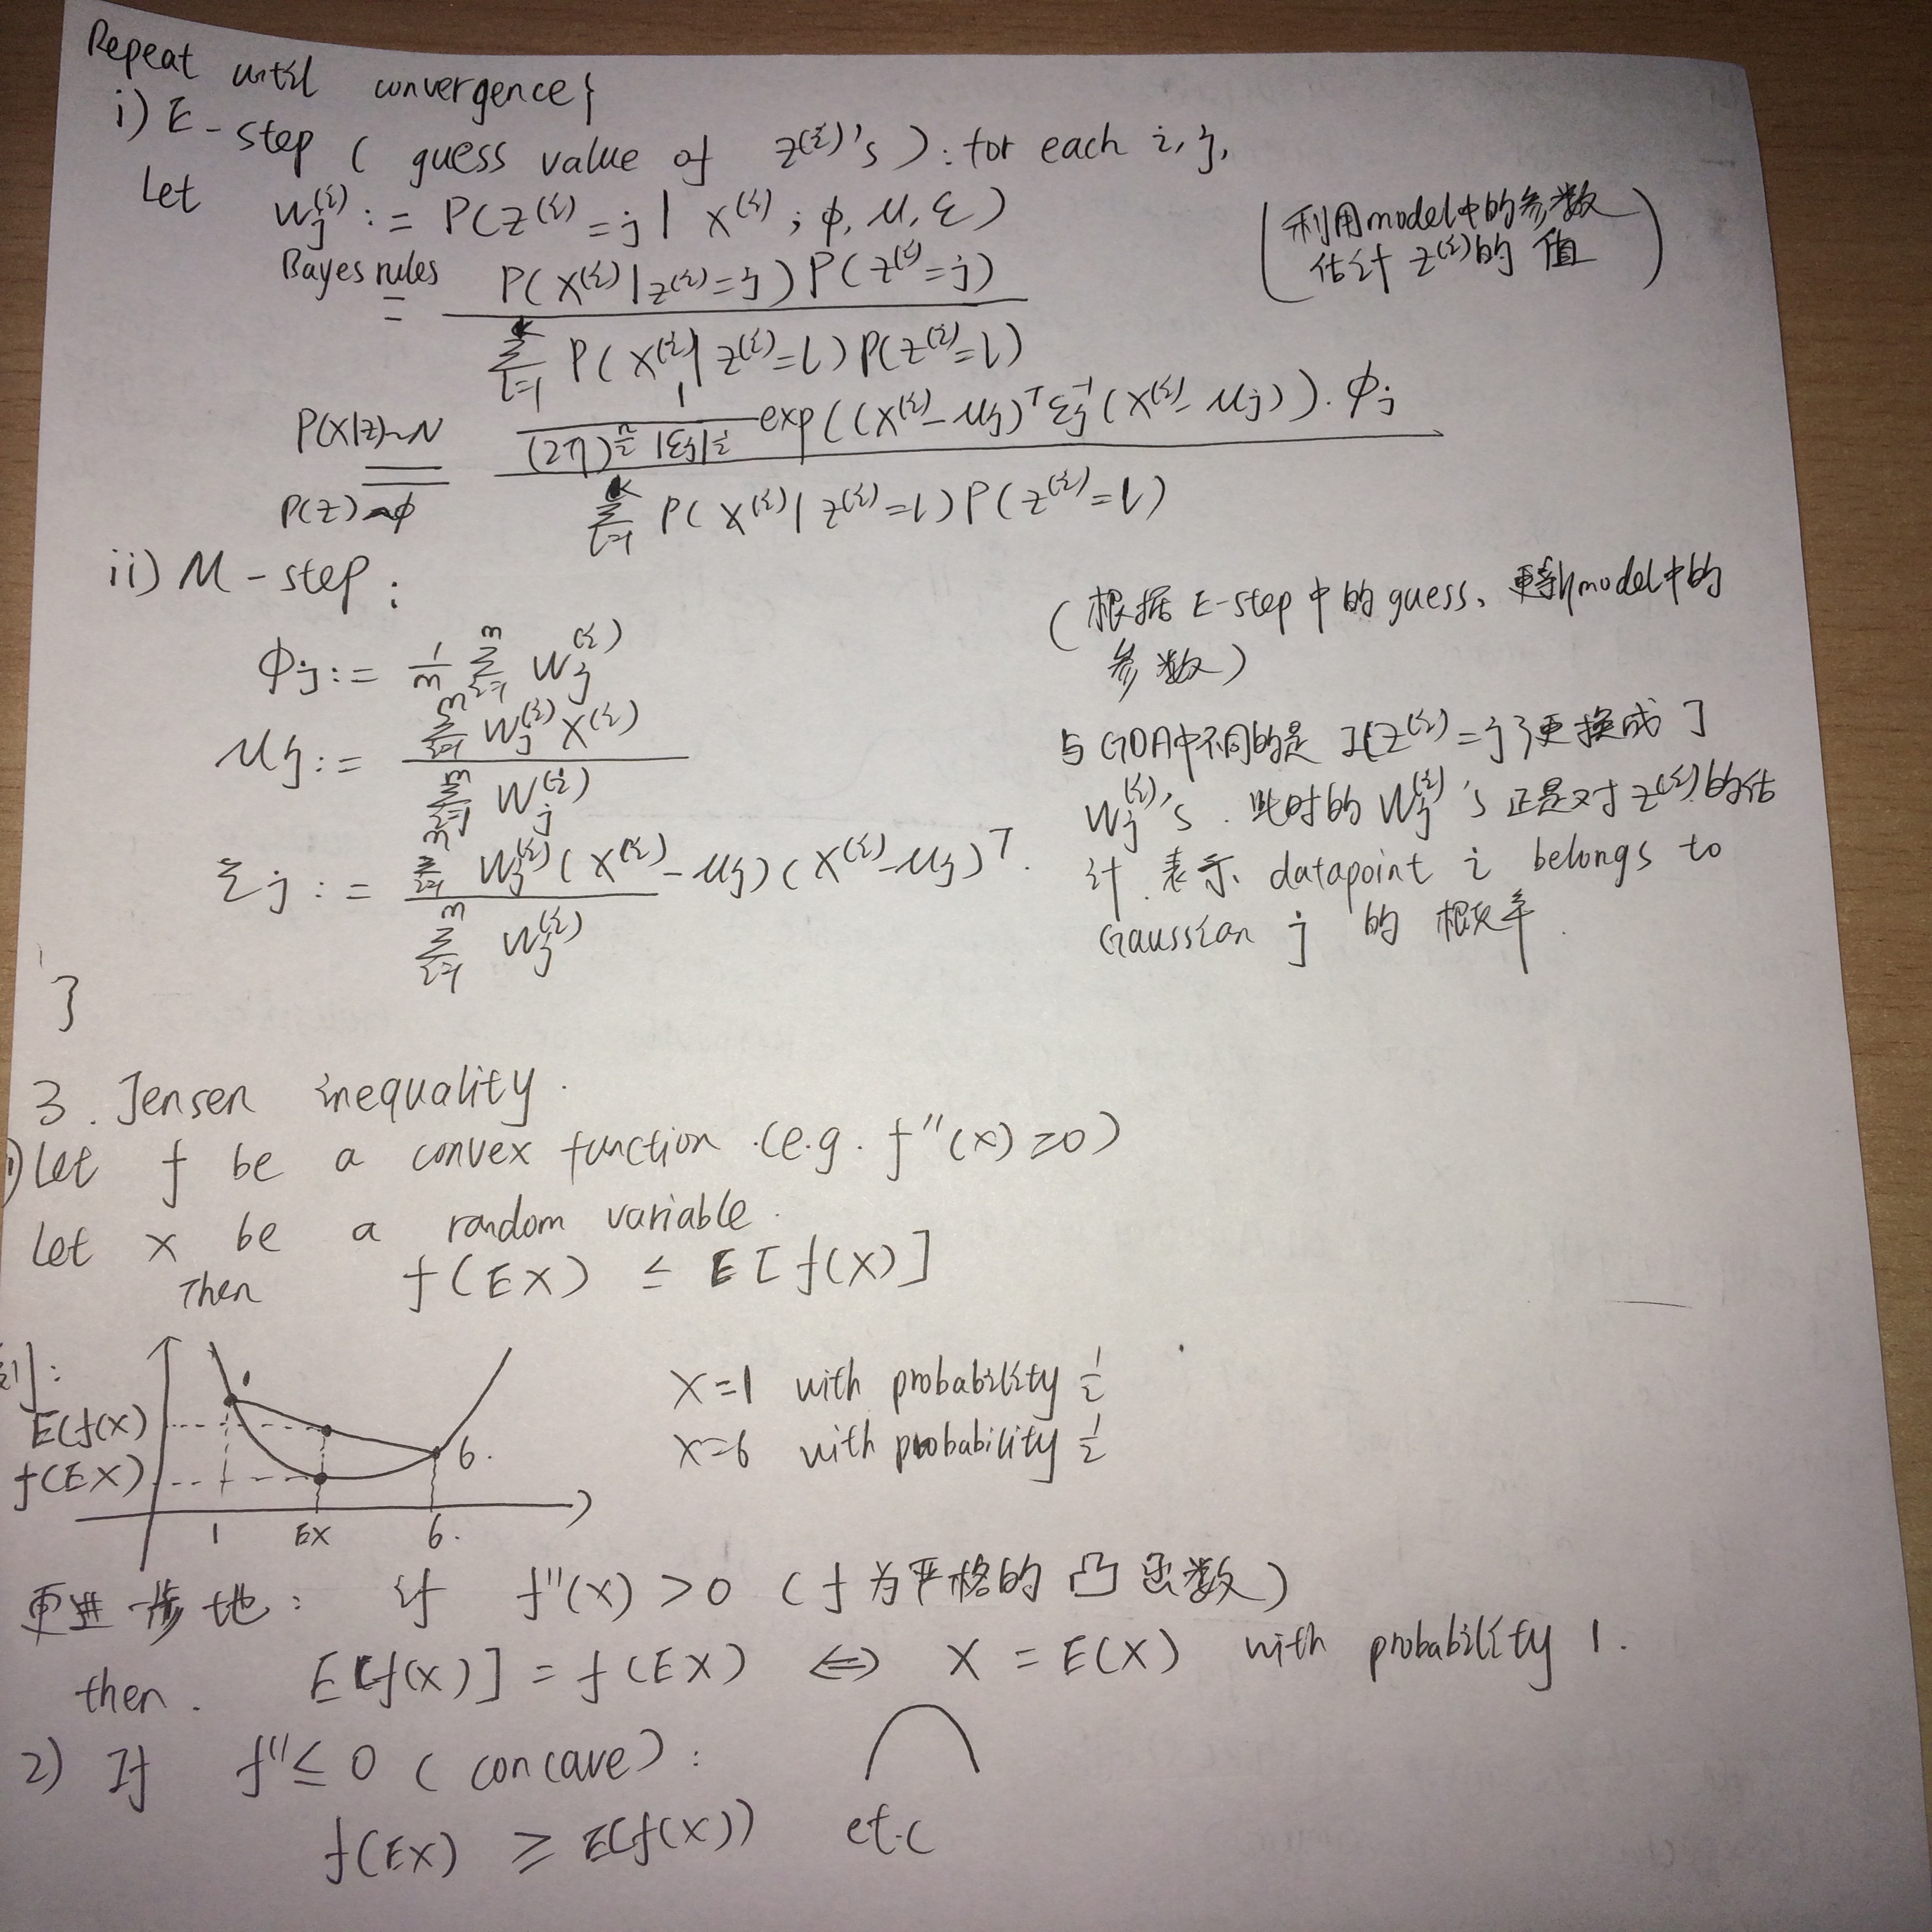 Repeat until convergence{
i) E-step ( guess value of z^(i)'s ): for each i, j,
Let w_j^(i) := P(z^(i)=j | x^(i) ; φ, μ, Σ)
(利用model中的参数
估计 z^(i)的 值)
Bayes rules
= P(x^(i)|z^(i)=j) P(z^(i)=j)
Σ_{l=1}^k P(x^(i)|z^(i)=l) P(z^(i)=l)
P(x|z)~N
P(z)~φ
= 1/((2π)^{n/2} |Σ_j|^{1/2}) exp((x^(i)-μ_j)^T Σ_j^{-1} (x^(i)-μ_j)) · φ_j
Σ_{l=1}^k P(x^(i)|z^(i)=l) P(z^(i)=l)
ii) M-step :
(根据 E-step中的guess、更新model中的
参数)
φ_j := 1/m Σ_{i=1}^m w_j^(i)
μ_j := Σ_{i=1}^m w_j^(i) x^(i)
Σ_{i=1}^m w_j^(i)
Σ_j := Σ_{i=1}^m w_j^(i) (x^(i)-μ_j)(x^(i)-μ_j)^T.
Σ_{i=1}^m w_j^(i)
与GDA中不同的是 I{z^(i)=j}更换成了
w_j^(i)'s. 此时的 w_j^(i)'s 正是对 z^(i)的估
计. 表示 datapoint i belongs to
Gaussian j 的 概率.
}
3. Jensen inequality.
1) Let f be a convex function.(e.g. f''(x)≥0)
Let x be a random variable.
Then f(EX) ≤ E[f(X)]
例:
E(f(X)
f(EX)
1
6.
1 EX 6.
X=1 with probability 1/2
X=6 with probability 1/2
更进一步地: if f''(x) >0 (f为严格的 凸 函数)
then. E[f(x)] = f(EX) ⇔ X = E(X) with probability 1.
2) If f''≤0 ( concave):
f(EX) ≥ E(f(X)) et.c